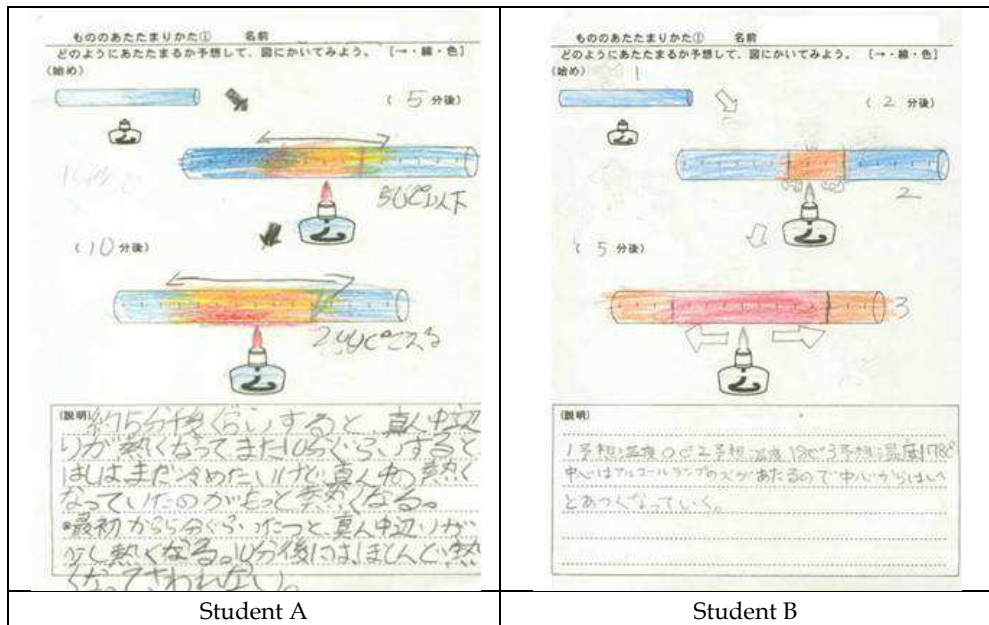 もののあたたまりかた① 名前
どのようにあたたまるか予想して、図にかいてみよう。 [→・線・色]
(始め)
( 5 分後)
50℃以下
(10 分後)
(説明) 約5分後ぐらいすると、真ん中辺
りが熱くなってまた10分ぐらいすると
はしはまだ冷めたいけど真ん中の熱く
なっていたのがもっと熱くなる。
•最初から5分ぐらいたつと、真ん中辺りが
少し熱くなる。10分後にはほとんど熱
くなってさわれない。
Student A
もののあたたまりかた① 名前
どのようにあたたまるか予想して、図にかいてみよう。 [→・線・色]
(始め) 1
( 2 分後)
2
( 5 分後)
3
(説明)
1予想:温度0℃2予想:温度18℃3予想:温度178℃
中心はアルコールランプの火があたるので中心からはしへ
とあつくなっていく。
Student B